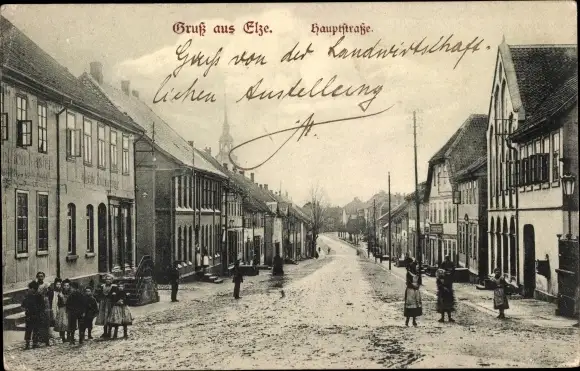 Gruß aus Elze. Hauptstraße.
Gruß von der Landwirtschaft-
lichen Ausstellung